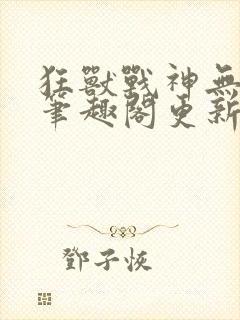 狂獸戰神無
筆趣閣更新
鄧子恢